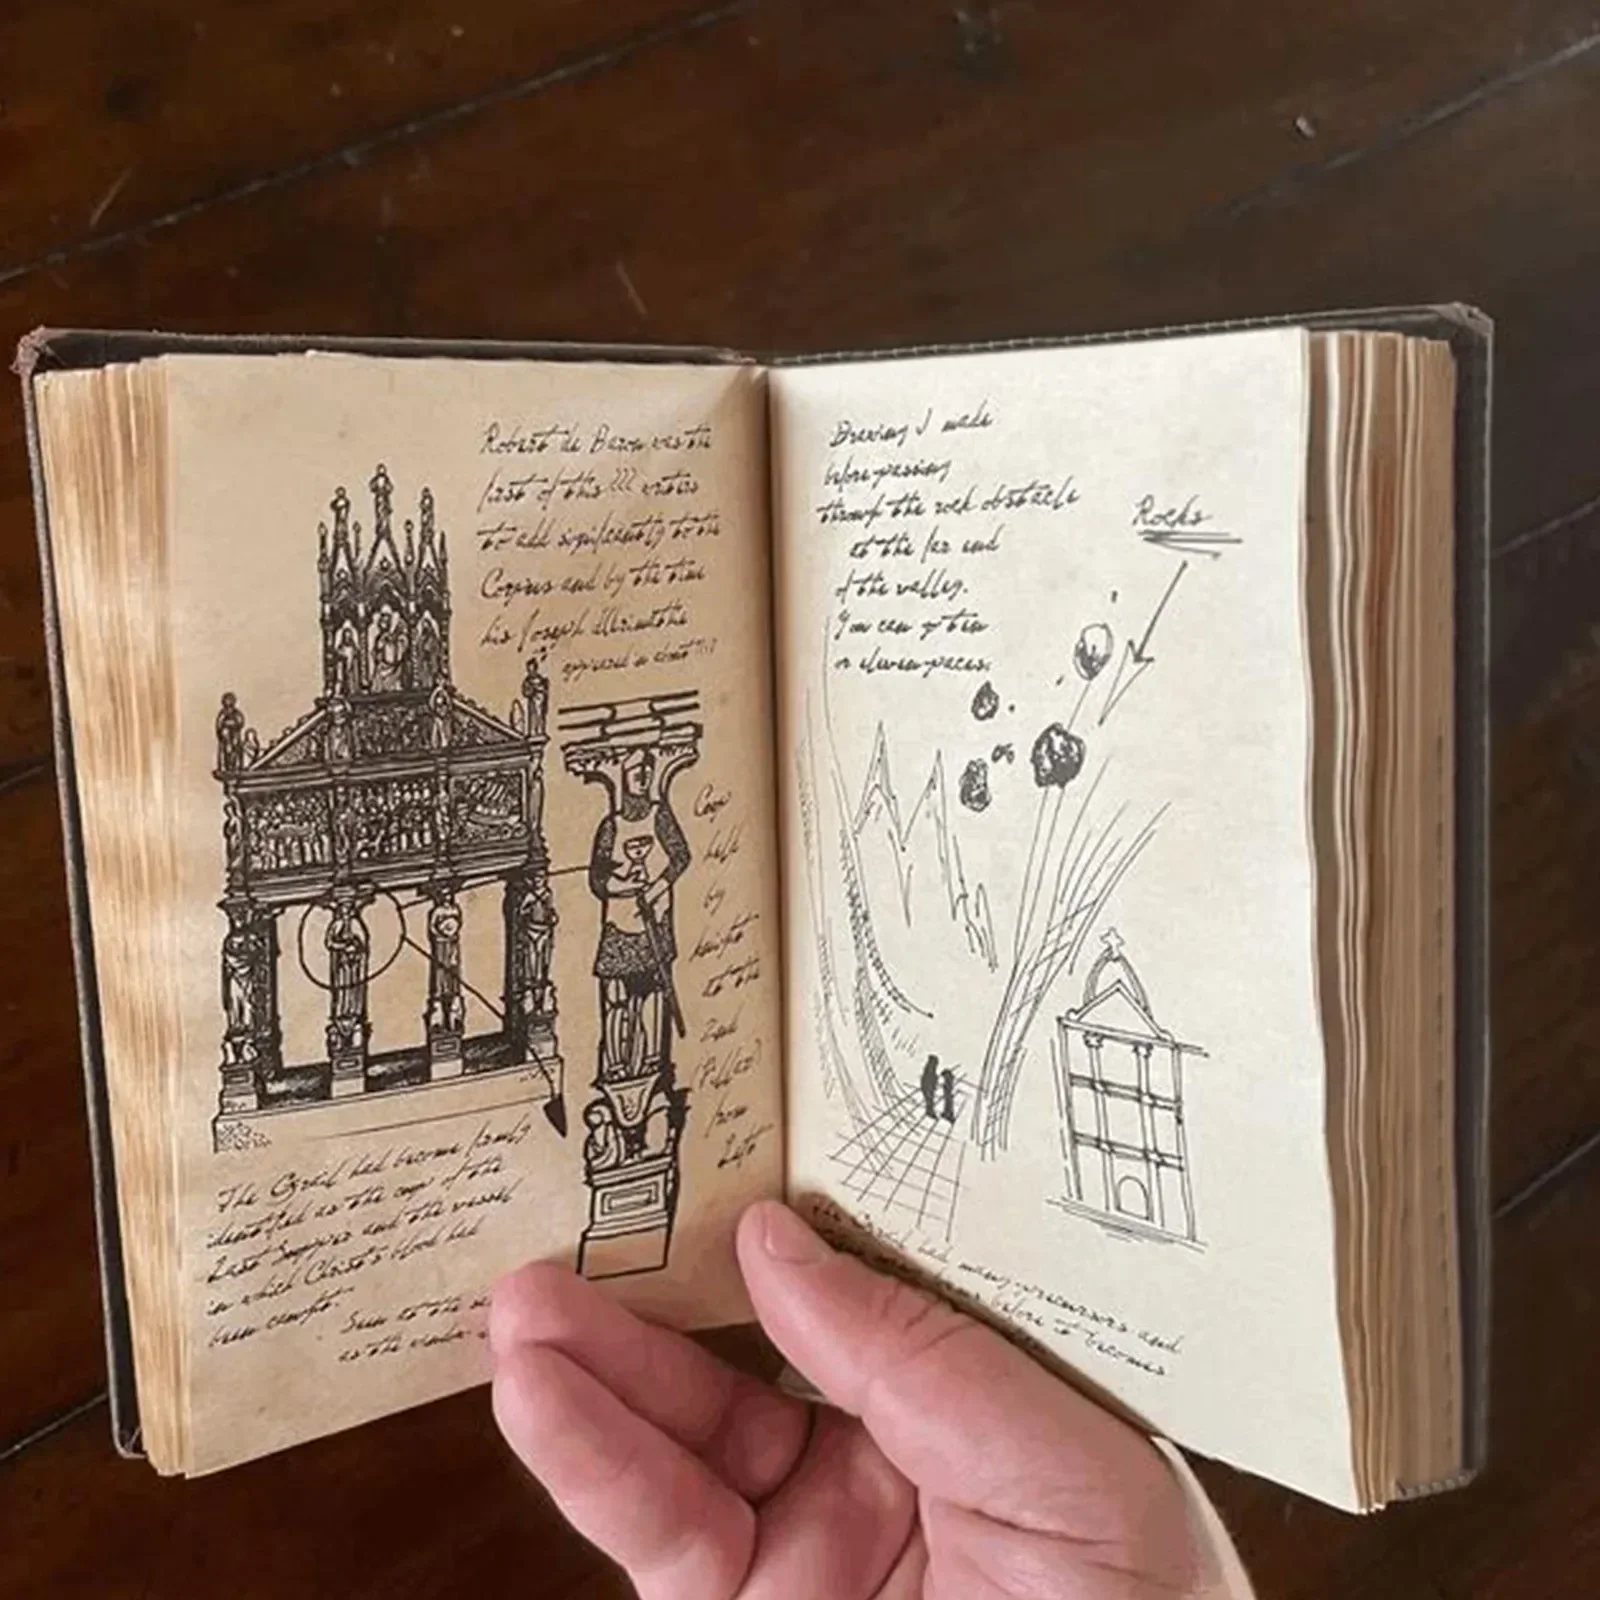 Robert de Baron was the
first of this ??? writers
to add significantly to the
Corpus and by the time
his Joseph
appeared in about
Coop
held
by
knight
at the
2nd
(Pillar)
from
Left
The Grail had become firmly
identified as the coop of the
Last Supper and the vessel
in which Christ's blood had
been caught.
Seen at the
as the
Drawing I made
before passing
through the rock obstacle
at the far end
of the valley.
You can go ten
or eleven paces.
Rocks
The Grail had many precursors and
before it becomes